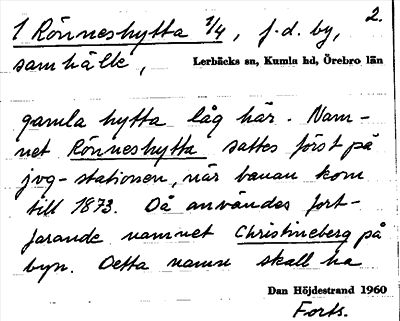 1 Rönneshytta 7/4, f.d. by, 2.
samhälle, Lerbäcks sn, Kumla hd, Örebro län
gamla hytta låg här. Nam-
net Rönneshytta sattes först på
jvg-stationen, när banan kom
till 1873. Då användes fort-
farande namnet Christineberg på
byn. Detta namn skall ha
Dan Höjdestrand 1960
Forts.